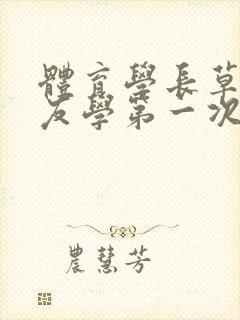 體育學長草
友學第一次
農慧芳